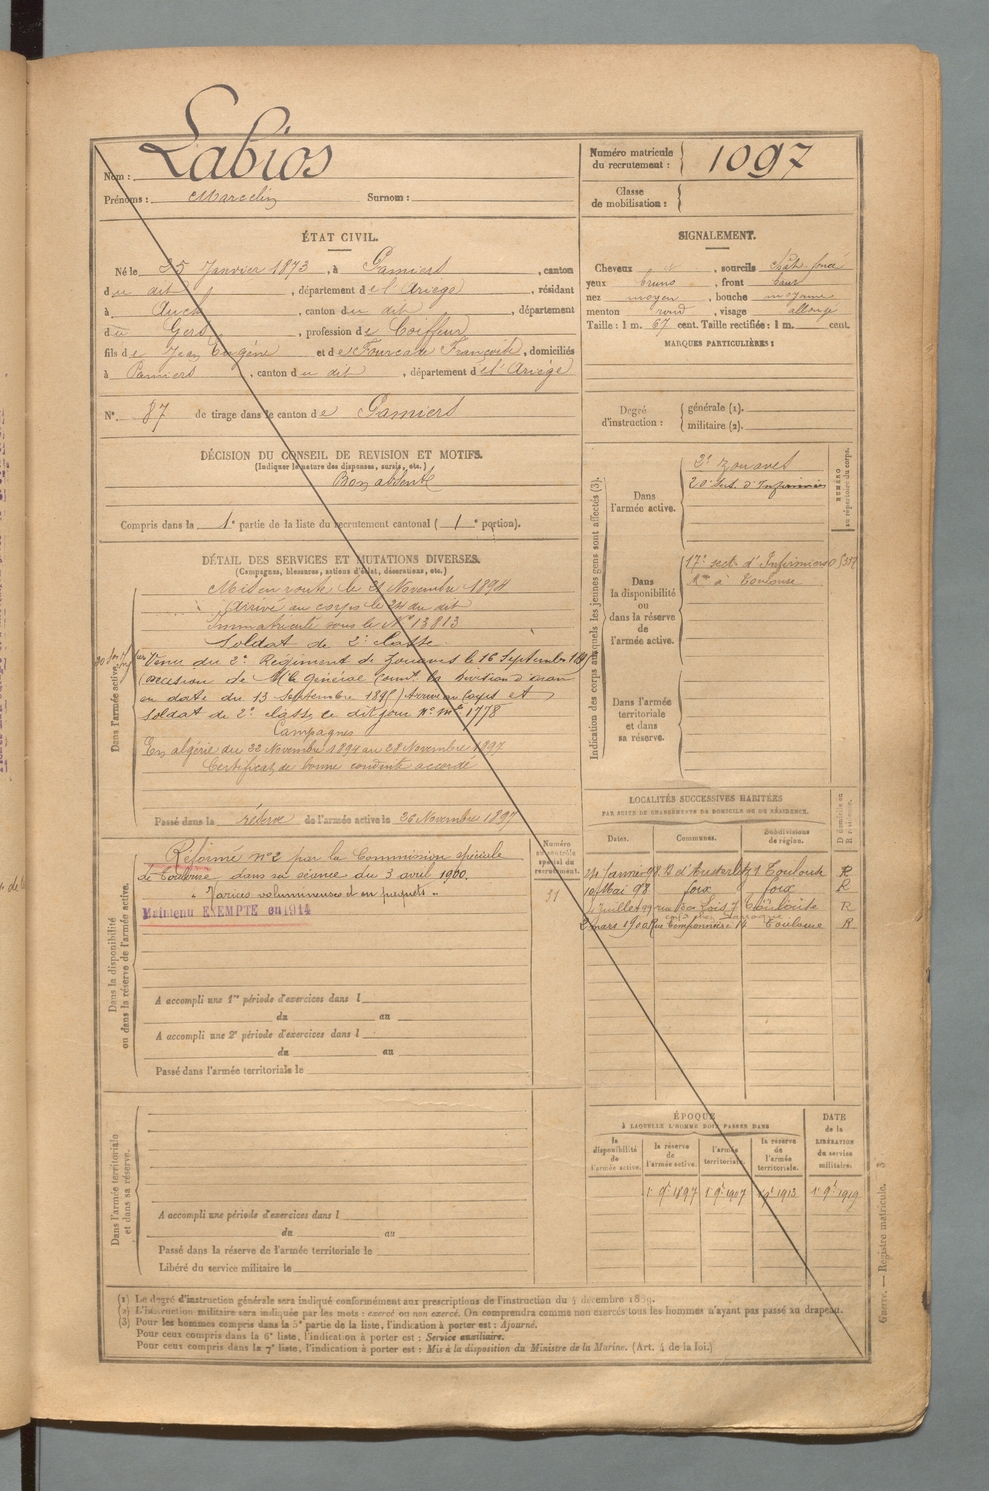 Nom : Labios
Prénoms : Marcelin Surnom :
Numéro matricule du recrutement : 1097
Classe de mobilisation :
ÉTAT CIVIL.
Né le 25 Janvier 1873, à Pamiers, canton
du dit, département de l'Ariège, résidant
à Auch, canton du dit, département
du Gers, profession de Coiffeur
fils de Jean Eugène et de Fourcade Françoise, domiciliés
à Pamiers, canton du dit, département de l'Ariège
N° 87 de tirage dans le canton de Pamiers
SIGNALEMENT.
Cheveux, sourcils chât. foncé
yeux bruns, front haut
nez moyen, bouche moyenne
menton rond, visage allongé
Taille : 1 m. 67 cent. Taille rectifiée : 1 m. cent.
MARQUES PARTICULIÈRES :
Degré d'instruction : générale (1).
militaire (2).
DÉCISION DU CONSEIL DE REVISION ET MOTIFS.
(Indiquer la nature des dispenses, sursis, etc.)
Bon absent
Compris dans la 1e partie de la liste du recrutement cantonal ( 1e portion).
DÉTAIL DES SERVICES ET MUTATIONS DIVERSES.
(Campagnes, blessures, actions d'éclat, décorations, etc.)
Dans l'armée active.
Mis en route le 21 Novembre 1894
Arrivé au corps le 24 du dit
Immatriculé sous le N° 13813
Soldat de 2e classe
Venu du 2e Régiment de Zouaves le 16 Septembre 1895
(décision de Mr le Général Comt la Division d'Oran
en date du 13 Septembre 1895) Arrivé au Corps et
Soldat de 2e classe ce dit jour N° mle 1778
Campagnes
En algérie du 22 Novembre 1894 au 28 Novembre 1897
Certificat de bonne conduite accordé
Passé dans la réserve de l'armée active le 26 Novembre 1897
Indication des corps auxquels les jeunes gens sont affectés (3).
NUMÉRO au répertoire du corps.
Dans l'armée active.
2e Zouaves
20e Sect. d'Infirmiers
Dans la disponibilité ou dans la réserve de l'armée active.
17e sect. d'Infirmiers
Mres à Toulouse
Dans l'armée territoriale et dans sa réserve.
Dans la disponibilité ou dans la réserve de l'armée active.
Numéro au contrôle spécial du recrutement.
31
Réformé n° 2 par la Commission spéciale
de Toulouse dans sa séance du 3 avril 1900.
"Varices volumineuses et en paquets"
Maintenu EXEMPTE en 1914
A accompli une 1re période d'exercices dans l
du au
A accompli une 2e période d'exercices dans l
du au
Passé dans l'armée territoriale le
LOCALITÉS SUCCESSIVES HABITÉES
PAR SUITE DE CHANGEMENTS DE DOMICILE OU DE RÉSIDENCE.
Dates. Communes. Subdivisions de région. D domicile ou R résidence.
Janvier 98 R. d'Austerlitz 1 Toulouse R
10 Mai 98 Foix Foix R
Juillet 99 rue des Lois 7 Toulouse R
2 mars 1900 Rue Temponnières 14 Toulouse R
Dans l'armée territoriale et dans sa réserve.
A accompli une période d'exercices dans l
du au
Passé dans la réserve de l'armée territoriale le
Libéré du service militaire le
ÉPOQUE À LAQUELLE L'HOMME DOIT PASSER DANS
la disponibilité de l'armée active.
la réserve de l'armée active.
l'armée territoriale.
la réserve de l'armée territoriale.
DATE de la LIBÉRATION du service militaire.
1r 9bre 1897 1r 9bre 1907 1r 9bre 1913 1r 9bre 1919
(1) Le degré d'instruction générale sera indiqué conformément aux prescriptions de l'instruction du 4 décembre 1889.
(2) L'instruction militaire sera indiquée par les mots : exercé ou non exercé. On comprendra comme non exercés tous les hommes n'ayant pas passé au drapeau.
(3) Pour les hommes compris dans la 5e partie de la liste, l'indication à porter est : Ajourné.
Pour ceux compris dans la 6e liste, l'indication à porter est : Service auxiliaire.
Pour ceux compris dans la 7e liste, l'indication à porter est : Mis à la disposition du Ministre de la Marine. (Art. 4 de la loi.)
Guerre. — Registre matricule. 3